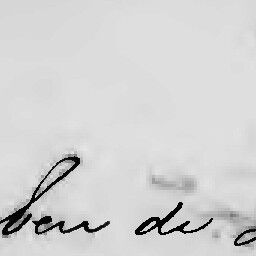 ben de